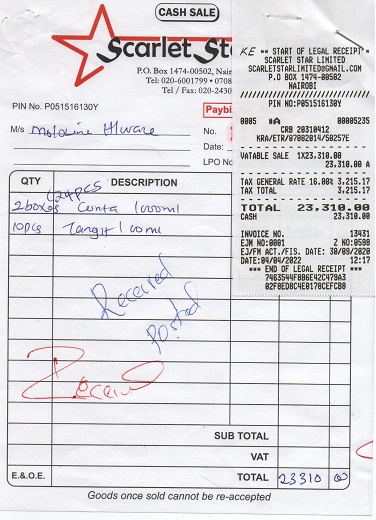 CASH SALE
Scarlet St
P.O. Box 1474-00502, Nair
Tel: 020-6001799 • 0708
Tel / Fax: 020-2430
PIN No. P051516130Y
Paybi
M/s
No.
Date:
LPO No
QTY DESCRIPTION
(24pcs
2boxes 1000ml
10pcs Tangit
Received
Posted
Received
SUB TOTAL
VAT
E.&O.E. TOTAL 23310 00
Goods once sold cannot be re-accepted
KE ** START OF LEGAL RECEIPT *
SCARLET STAR LIMITED
SCARLETSTARLIMITED@GMAIL.COM
P.O BOX 1474-00502
NAIROBI
PIN NO:P051516130Y
0005 #A 00005235
CRB 20310412
KRA/ETR/07082014/50257E
VATABLE SALE 1X23,310.00
23,310.00 A
TAX GENERAL RATE 16.00% 3,215.17
TAX TOTAL 3,215.17
TOTAL 23,310.00
CASH 23,310.00
INVOICE NO. 13431
EJM NO:0001 Z NO:0598
EJ/FM ACT./FIS. DATE: 30/09/2020
DATE:04/04/2022 12:17
*** END OF LEGAL RECEIPT ***
7463544F8B6E42C479A3
02F8ED8C4E0178CEFCB8